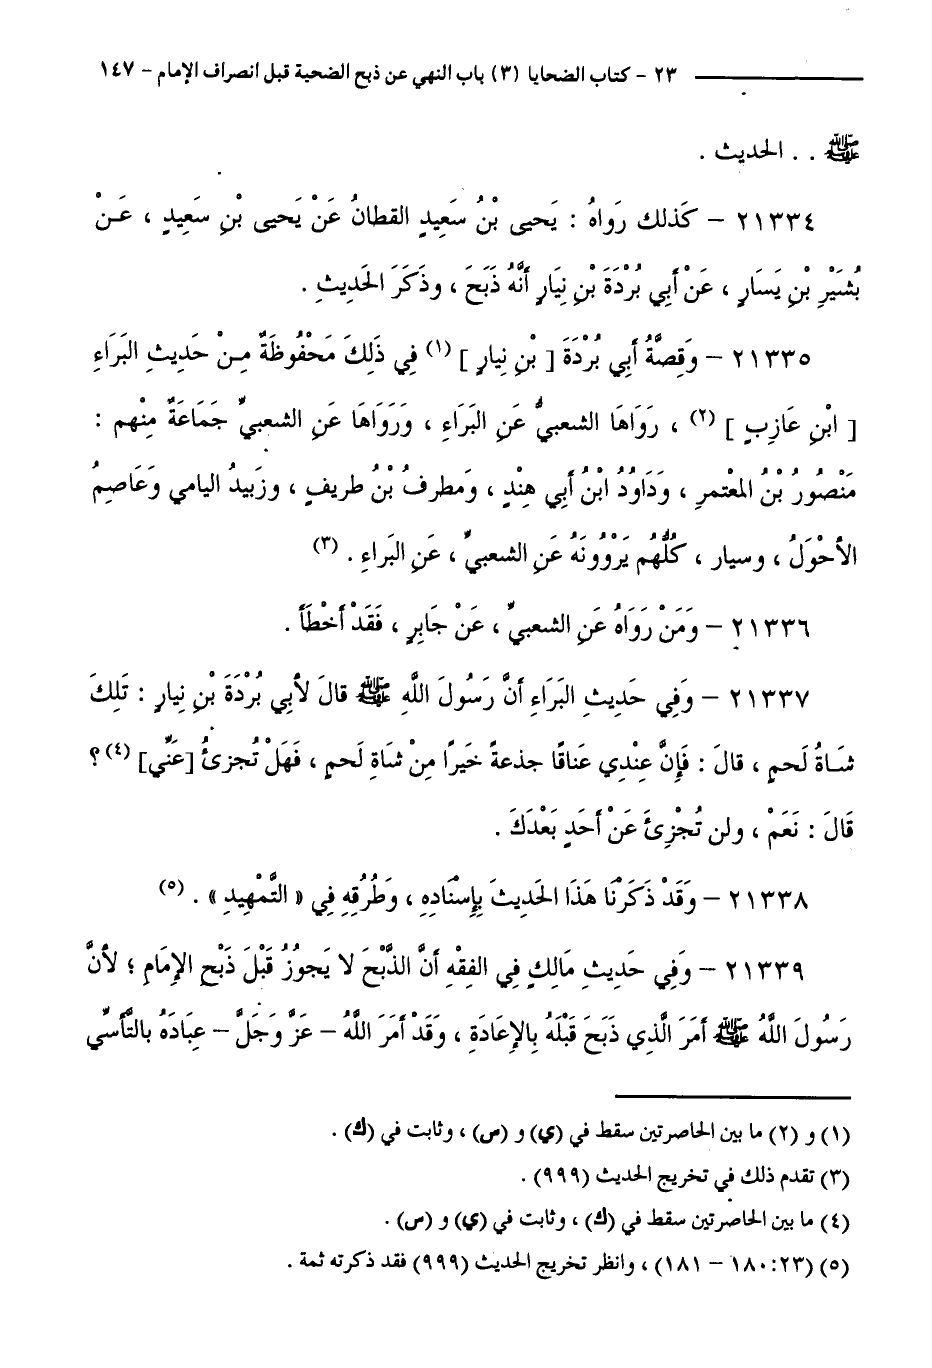 ٢٣ - كتاب الضحايا (٣) باب النهي عن ذبح الضحية قبل انصراف الإمام - ١٤٧
ﷺ . . الحديث .
٢١٣٣٤ - كَذلك رَواهُ : يَحيى بْنُ سَعيدٍ القطانُ عَنْ يَحيى بْنِ سَعِيدٍ ، عَـنْ
بُشَيْرِ بْنِ يَسَارٍ ، عَنْ أَبي بُرْدَةَ بْنِ نِيَارٍ أنَّهُ ذَبَحَ ، وذَكَرَ الحَدِيثِ .
٢١٣٣٥ - وَقِصَّةُ أبي بُرْدَةَ [ بْنِ نِيارٍ ] (١) فِي ذَلِكَ مَحْفُوظَةٌ مِـنْ حَديثِ البَرَاءِ
[ ابْنِ عَازِبٍ ] (٢) ، رَوَاهَا الشعبيُّ عَنِ البَرَاءِ ، وَرَوَاهَا عَنِ الشعبيِّ جَمَاعَةٌ مِنْهم :
مَنْصُورُ بْنُ المعْتمرِ ، وَدَاوُدُ ابْنُ أَبي هِنْدٍ ، وَمَطرفُ بْنُ طريفٍ ، وزَبيدُ اليامي وعَاصِمُ
الأَحْوَلُ ، وسيار ، كُلُّهُم يَرْوُونَهُ عَنِ الشعبيِّ ، عَنِ البَراءِ . (٣)
٢١٣٣٦ - وَمَنْ رَوَاهُ عَنِ الشعبيِّ ، عَنْ جَابِرٍ ، فَقَدْ أَخْطَأَ .
٢١٣٣٧ - وَفِي حَديثِ البَرَاءِ أَنَّ رَسُولَ اللَّهِ ﷺ قالَ لأَبي بُرْدَةَ بْنِ نيارٍ : تَلِكَ
شـَاةُ لَحمٍ ، قالَ : فَإِنَّ عِنْدِي عَناقًا جذعةً خَيْرًا مِنْ شَاةِ لَحمٍ ، فَهَلْ تُجزئُ [عَنِّي] (٤) ؟
قَالَ : نَعَمْ ، ولن تُجْزِئَ عَنْ أَحَدٍ بَعْدَكَ .
٢١٣٣٨ - وَقَدْ ذَكَرْنَا هَذَا الحَدِيثَ بِإِسْنَادِهِ ، وَطُرُقِهِ فِي « التَّمْهِيدِ » . (٥)
٢١٣٣٩ - وَفِي حَديثِ مَالِكٍ فِي الفِقْهِ أَنَّ الذَّبْحَ لا يَجوزُ قَبْلَ ذَبْحِ الإِمَامِ ؛ لأَنَّ
رَسُولَ اللَّهُ ﷺ أَمَرَ الَّذِي ذَبَحَ قَبْلَهُ بِالإِعَادَةِ ، وَقَدْ أَمَرَ اللَّهُ - عَزَّ وَجَلَّ - عِبَادَهُ بالتَّأَسِّي
(١) و (٢) ما بين الحاصرتين سقط في (ي) و (س) ، وثابت في (ك) .
(٣) تقدم ذلك في تخريج الحديث (٩٩٩) .
(٤) ما بين الحاصرتين سقط في (ك) ، وثابت في (ي) و (س) .
(٥) (٢٣: ١٨٠ - ١٨١) ، وانظر تخريج الحديث (٩٩٩) فقد ذكرته ثمة .